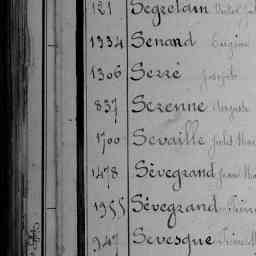 121 Segretain
1334 Senard Eugène
1306 Serré Joseph
837 Serenne Auguste
1700 Sevaille
1478 Sévegrand
1955 Sévegrand
947 Sevesque